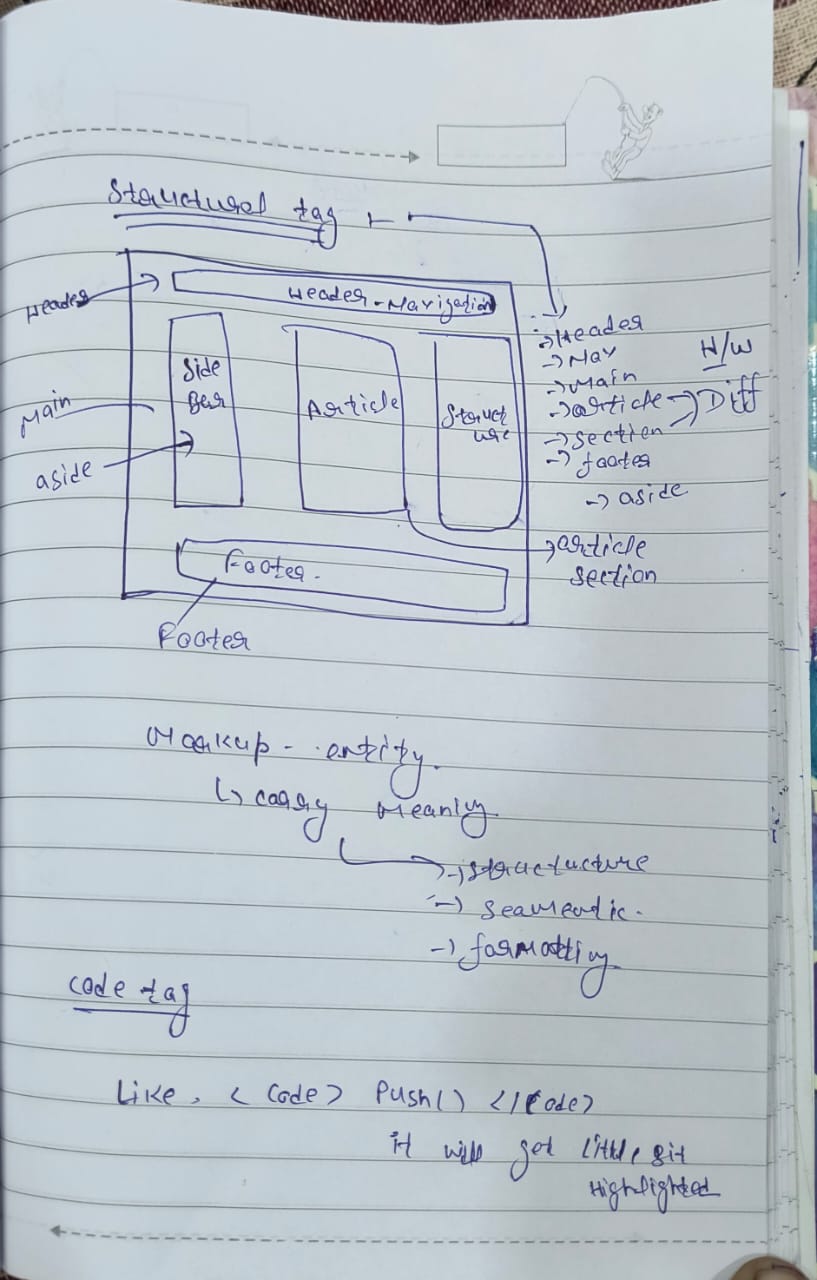 Structural tag
Header
Header - Navigation
Side
Bar
Article
Struct
ure
Main
aside
Footer.
Footer
-> Header
-> Nav
-> Main
-> article
-> section
-> footer
-> aside
H/W
Diff
article
section
Markup - entity.
carry meaning
-> structucture
-> seamendic.
-> formatting
code tag
Like, < Code > Push() </Code>
it will get little bit
Highlighted